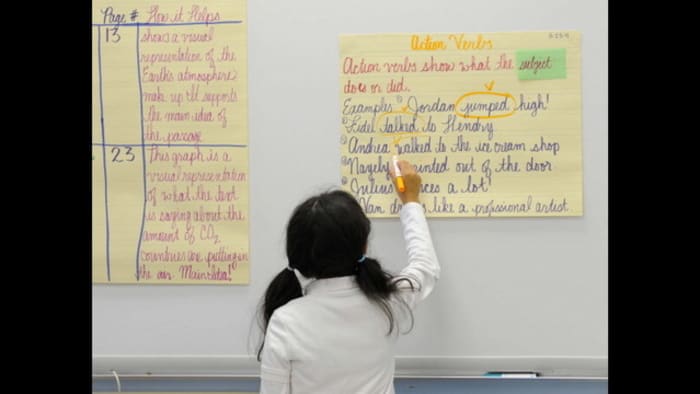 Page # How it Helps
13 shows a visual
representation of the
Earth's atmosphere
make up. It supports
the main idea of
the passage
23 This graph is a
visual representation
of what the text
is saying about the
amount of CO2
countries are putting in
the air. Main Idea!
Action Verbs
Action verbs show what the subject
does or did.
Examples: Jordan jumped high!
Fidel talked to Hendry
Andrea walked to the ice cream shop
out of the door
Julius a lot!
Van like a professional artist.